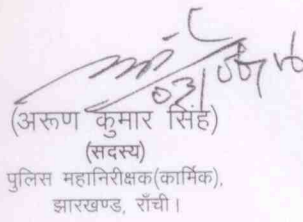 (अरूण कुमार सिंह)
(सदस्य)
पुलिस महानिरीक्षक(कार्मिक),
झारखण्ड, राँची।